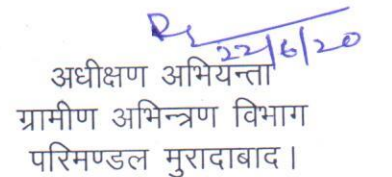 22/6/20
अधीक्षण अभियन्ता
ग्रामीण अभिन्त्रण विभाग
परिमण्डल मुरादाबाद।